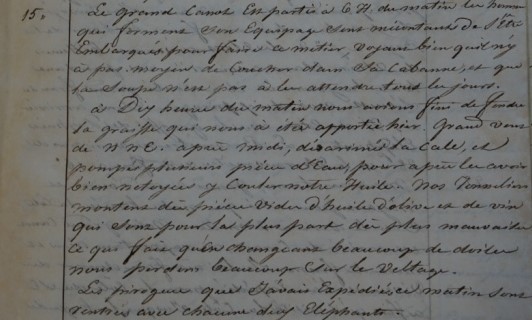 15. Le Grand Canot Est partie à 6 H. du matin les homme
qui forment son Equipage sont mécontant de s'être
Embarqués pour faire ce métier, voyant bien qu'il n'y
à pas moyen de Coucher dans sa Cabanne, et que
la Soupe n'est pas à les attendre tous les jours.
à Dix heure du matin nous avions fini de fondre
la graisse qui nous à étée apportée hier. Grand vent
de NNE. après midi, désarimés la Cale, et
pompé plusieurs pièce d'Eau, pour après les avoir
bien netoyées y Couler notre Huile. Nos Tonneliers
montent des pièce Vides d'huile d'olive et de vin
qui sont pour la plus part des plus mauvaises
ce qui fait qu'en changeant beaucoup de doiles
nous perdons beaucoup sur le Veltage.
Les pirogues que J'avais Expédiés ce matin sont
rentrées avec chacune deux Eléphants.